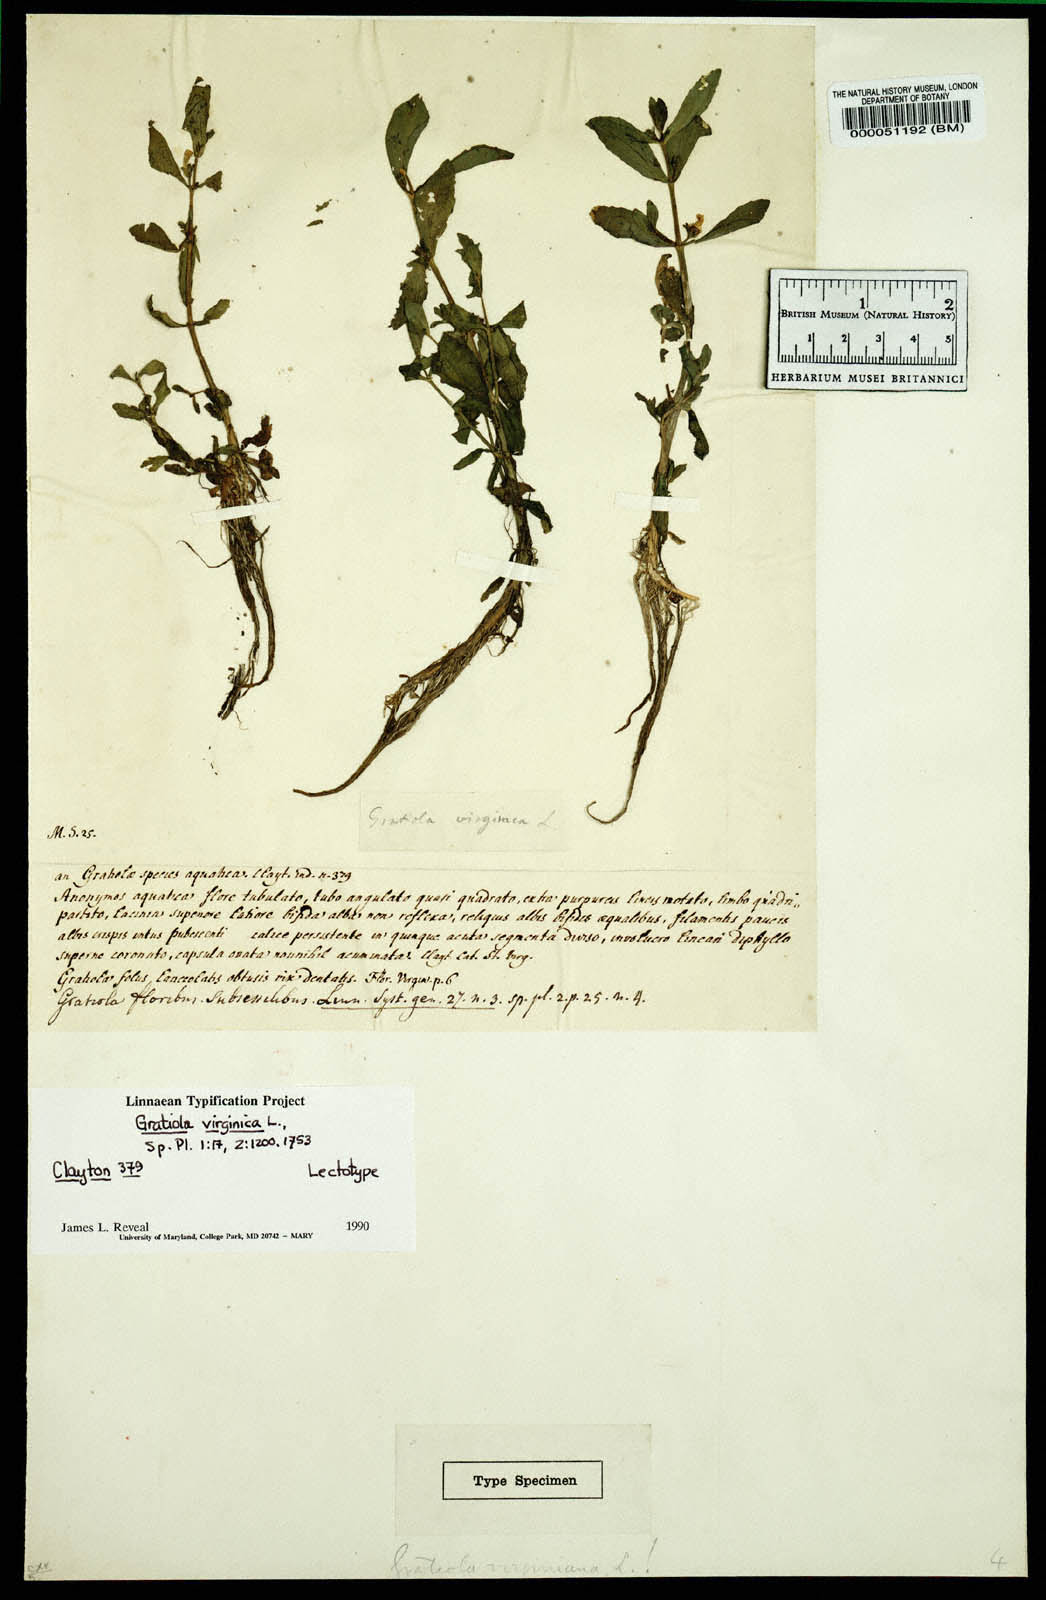 THE NATURAL HISTORY MUSEUM, LONDON
DEPARTMENT OF BOTANY
000051192 (BM)
1 2
BRITISH MUSEUM (NATURAL HISTORY)
1 2 3 4 5
HERBARIUM MUSEI BRITANNICI
Gratiola virginica L
M. S. 25.
an Gratiolæ species aquatica. Clayt. n. 379
Anonymos aquatica flore tubulato, tubo angulato quasi quadrato, extra purpureis lineis notato, limbo quadri,,
partito, lacinia superiore latiore bifida alba non reflexa, reliquis albis bifidis æqualibus, filamentis paucis
albis crispis intus pubescenti calice persistente in quinque acuta segmenta diviso, involucro lineari diphyllo
superne coronato, capsula ovata nonnihil acuminata. Clayt. Cat. St. Virg.
Gratiola foliis lanceolatis obtusis vix dentatis. Flor. Virgin. p. 6
Gratiola floribus Subsessilibus. Linn. Syst. gen. 27. n. 3. sp. pl. 2. p. 25. n. 4.
Linnaean Typification Project
Gratiola virginica L.,
Sp. Pl. 1:17, 2:1200. 1753
Clayton 379 Lectotype
James L. Reveal 1990
University of Maryland, College Park, MD 20742 – MARY
Type Specimen
Gratiola virginiana L.!
4